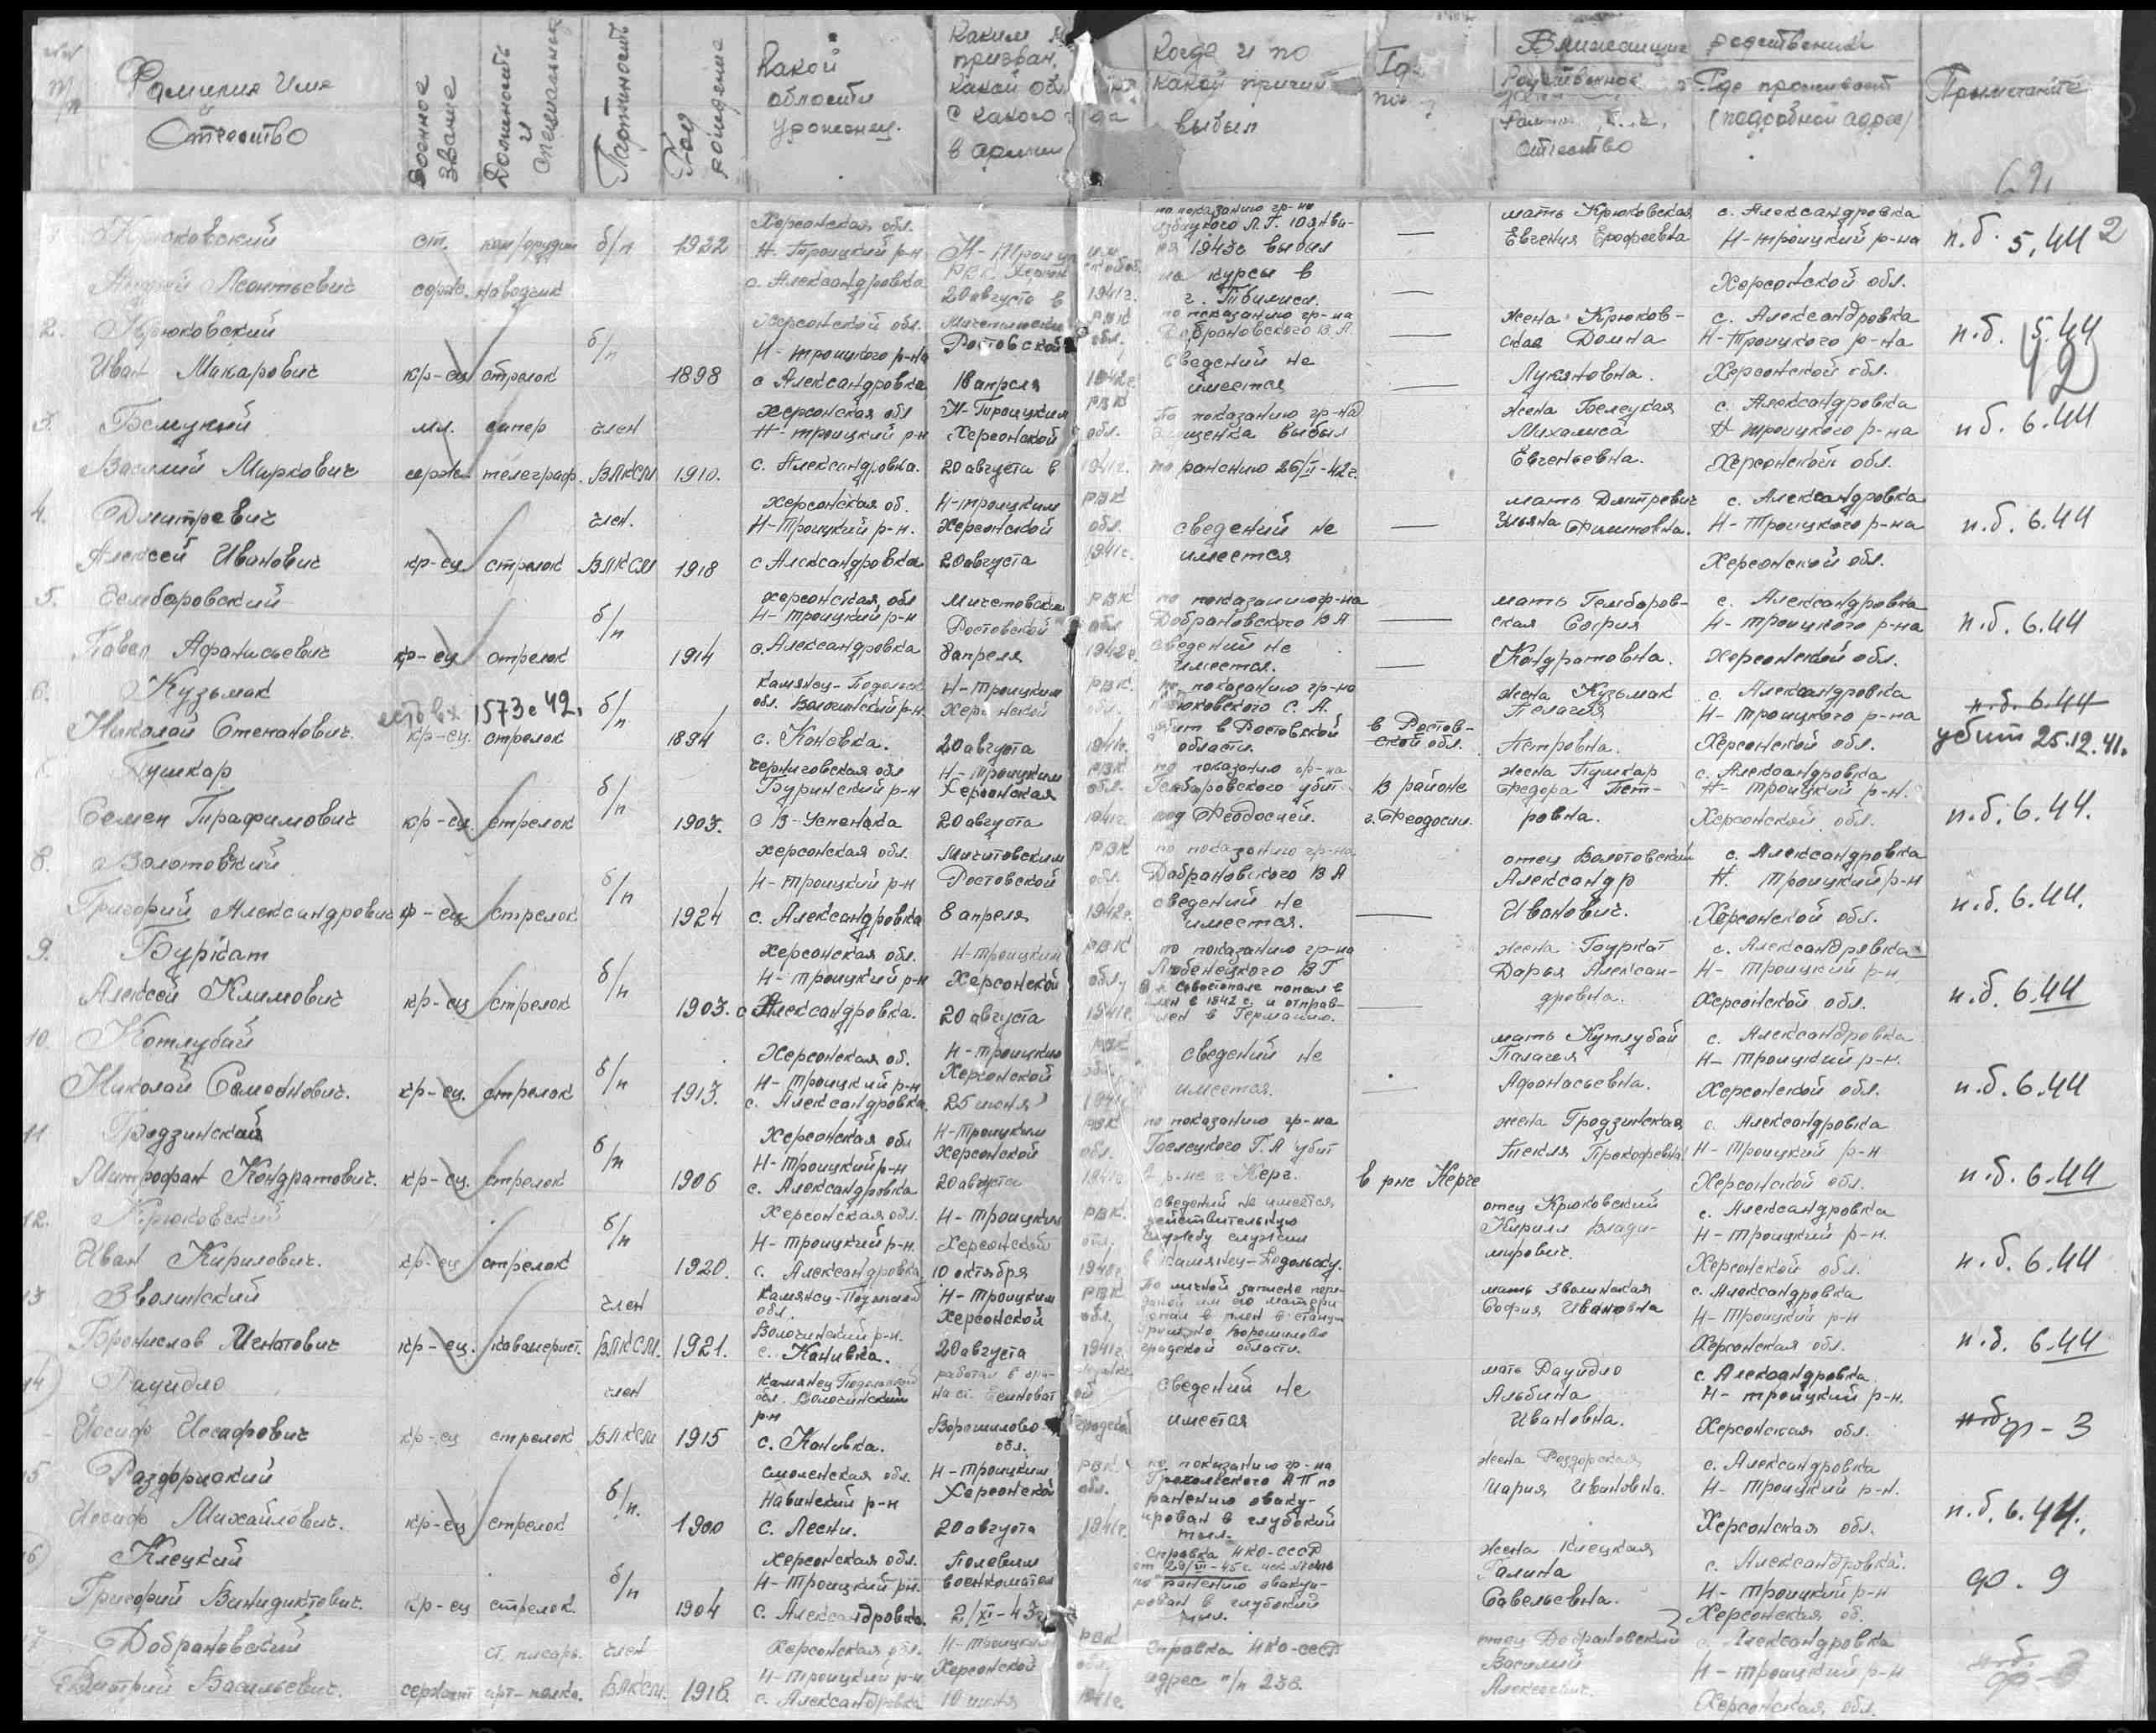 №№ п/п
Фамилия Имя и Отчество
Военное звание
Должность и специальность
Партийность
Год рождения
Какой области уроженец.
Каким
призван,
какой обл.
с какого
в армии
Когда и по
какой причине
выбыл
Ближайшие родственники
Отчество
Где проживает
(подробный адрес)
Примечание
Крюковский
Андрей Леонтьевич
ст. серж.
ком/орудия наводчик
б/п
1922
Херсонская обл.
Н-Троицкий р-н
с. Александровка
20 августа в 1941 г.
по показанию гр-на
10 янва-
ря 1943г выбыл
на курсы в
г. Тбилиси.
мать Крюковская
Евгения Ерофеевна
с. Александровка
Н-троицкий р-на
Херсонской обл.
п.б. 5.44
2
2. Крюковский
Иван Макарович
кр-ец стрелок
б/п
1898
Херсонской обл.
Н-троицкого р-на
с Александровка
Ростовской обл.
18 апреля 1942г.
по показанию гр-на
Добрановского В.А.
сведений не
имеется
жена Крюков-
ская Домна
Лукяновна.
с. Александровка
Н-Троицкого р-на
Херсонской обл.
п.б. 5.44
42
3. Белуцкий
Василий Маркович
мл. серж.
сапер телеграф.
член ВЛКСМ
1910.
Херсонская обл
Н-троицкий р-н
с. Александровка.
Н-Троицким РВК
Херсонской обл.
20 августа в 1941г.
по показанию гр-на
выбыл
по ранению 26/II-42г.
жена Белецкая
Михалиса
Евгеньевна.
с. Александровка
Н-троицкого р-на
Херсонской обл.
п.б. 6.44
4. Дмитревич
Алексей Иванович
кр-ец стрелок
член. ВЛКСМ
1918
Херсонская об.
Н-Троицкий р-н.
с Александровка
Н-троицким РВК
Херсонской обл.
20 августа 1941г.
сведений не
имеется
мать Дмитревич
Ульяна Филиновна.
с. Александровка
Н-Троицкого р-на
Херсонской обл.
п.б. 6.44
5. Гембаровский
Павел Афанасьевич
кр-ец стрелок
б/п
1914
Херсонская обл
Н-троицкий р-н
с. Александровка
РВК
Ростовской обл
8 апреля 1942г.
по показанию гр-на
Добрановского В А
сведений не
имеется.
мать Гембаров-
ская София
Кондратовна.
с. Александровка
Н-троицкого р-на
Херсонской обл.
п.б. 6.44
6. Кузьмак
Николай Степанович.
вх 1573с 42.
кр-ец. стрелок
б/п
1894
Камянец-Подольск
обл. Волочинский р-н.
с. Коновка.
Н-троицким РВК.
Херсонской обл.
20 августа 1941г.
по показанию гр-на
Крюковского С. А.
убит в Ростовской
области.
в Ростов-
ской обл.
жена Кузьмак
Пелагея
Петровна.
с. Александровка
Н-троицкого р-на
Херсонской обл.
п.б. 6.44
убит 25.12.41.
Пушкар
Семен Тирафимович
кр-ец. стрелок
б/п
1903.
Черниговская обл
Буринский р-н
с В-Успенка
Н-троицким РВК
Херсонская обл.
20 августа 1941г.
по показанию гр-на
Гембаровского убит
под Феодосией.
В районе
г. Феодосии.
жена Пушкар
Федора Пет-
ровна.
с. Александровка
Н-троицкий р-н.
Херсонской обл.
п.б. 6.44.
8. Золотовский
Григорий Александрович
кр-ец стрелок
б/п
1924
Херсонская обл.
Н-троицкий р-н
с. Александровка
РВК
Ростовской обл.
8 апреля 1942г.
по показанию гр-на
Добрановского В А
сведений не
имеется.
отец Золотовский
Александр
Иванович.
с. Александровка
Н. троицкий р-н
Херсонской обл.
п.б. 6.44.
9. Буркат
Алексей Климович
кр-ец стрелок
б/п
1903.
Херсонская обл.
Н-троицкий р-н
с Александровка.
Н-троицким РВК
Херсонской обл.
20 августа 1941г.
по показанию гр-на
Любенецкого В Г
в Севостополе попал в
плен в 1942 г. и отправ-
лен в Германию.
жена Буркат
Дарья Алексан-
дровна.
с. Александровка
Н-троицкий р-н
Херсонской обл.
п.б. 6.44
10. Котлубай
Николай Самойнович.
кр-ец. стрелок
б/п
1913.
Херсонская об.
Н-троицкий р-н
с. Александровка.
Н-троицким РВК
Херсонской обл.
25 июня 1941
сведений не
имеется.
мать Кутлубай
Палагея
Афонасьевна.
с. Александровка
Н-троицкий р-н.
Херсонской обл.
п.б. 6.44
11 Гродзинский
Митрофан Кондратович.
кр-ец. стрелок
б/п
1906
Херсонская обл
Н-троицкий р-н
с. Александровка
Н-троицким РВК
Херсонской обл.
20 августа 1941г
по показанию гр-на
Белецкого Г.А убит
в р-не г Керч.
в рне Керче
жена Гродзинская
Текля Прокофевна
с. Александровка
Н-троицкий р-н
Херсонской обл.
п.б. 6.44
12. Крюковский
Иван Кирилович.
кр-ец стрелок
б/п
1920.
Херсонская обл.
Н-троицкий р-н.
с. Александровка
Н-троицким РВК.
Херсонской обл.
10 октября 1940г.
сведений не имеется
действительную
службу служил
в Камянец-Подольску.
отец Крюковский
Кирилл Влади-
мирович.
с. Александровка
Н-троицкий р-н.
Херсонской обл.
п.б. 6.44
13 Зволинский
Бронислав Игнатович
кр-ец. кавалерист.
член ВЛКСМ.
1921.
Камянец-Подольской
обл.
Волочинский р-н.
с. Канивка.
Н-троицким РВК
Херсонской обл.
20 августа 1941г.
По личной записке пере-
даной им его матери
попал в плен в
Ворошилово
градской области.
мать Зволинская
София Ивановна
с. Александровка
Н-троицкий р-н
Херсонская обл.
п.б. 6.44
14 Рауидло
Иосиф Иосифович
кр-ец стрелок
член ВЛКСМ
1915
Камянец Подольской
обл. Волочинский
р-н
с. Канивка.
Ворошилово-
градской обл.
сведений не
имеется
мать Рауидло
Альбина
Ивановна.
с. Александровка.
Н-троицкий р-н.
Херсонская обл.
п.б.
ф-3
15 Раздорский
Иосиф Михайлович.
кр-ец стрелок
б/п.
1900
Смоленская обл.
Навинский р-н
с. Лесни.
Н-троицким РВК.
Херсонской обл.
20 августа 1941г.
по показанию гр-на
А П по
ранению эваку-
ирован в глубокий
тыл.
жена Раздорская
Мария Ивановна.
с. Александровка
Н-троицкий р-н.
Херсонская обл.
п.б. 6.44.
16 Клецкий
Григорий Винидиктович.
кр-ец стрелок.
б/п
1904
Херсонская обл.
Н-троицкий рн.
с. Александровка.
Полевым
военкоматом
2/XI-43г
Справка НКО-СССР
по ранению эвакуи-
рован в глубокий
тыл.
жена Клецкая
Галина
Савельевна.
с. Александровка.
Н-троицкий р-н
Херсонская об.
ф. 9
17 Добрановский
Дмитрий Васильевич.
сержант
ст. писарь арт-полка.
член ВЛКСМ.
1918.
Херсонская обл.
Н-троицкий р-н
с. Александровка
Н-троицким РВК
Херсонской обл.
10 июня 1941г.
Справка НКО-СССР
адрес п/п 238.
отец Добрановский
Василий
Алексеевич.
с. Александровка
Н-троицкий р-н
Херсонская обл.
п.б.
ф-3